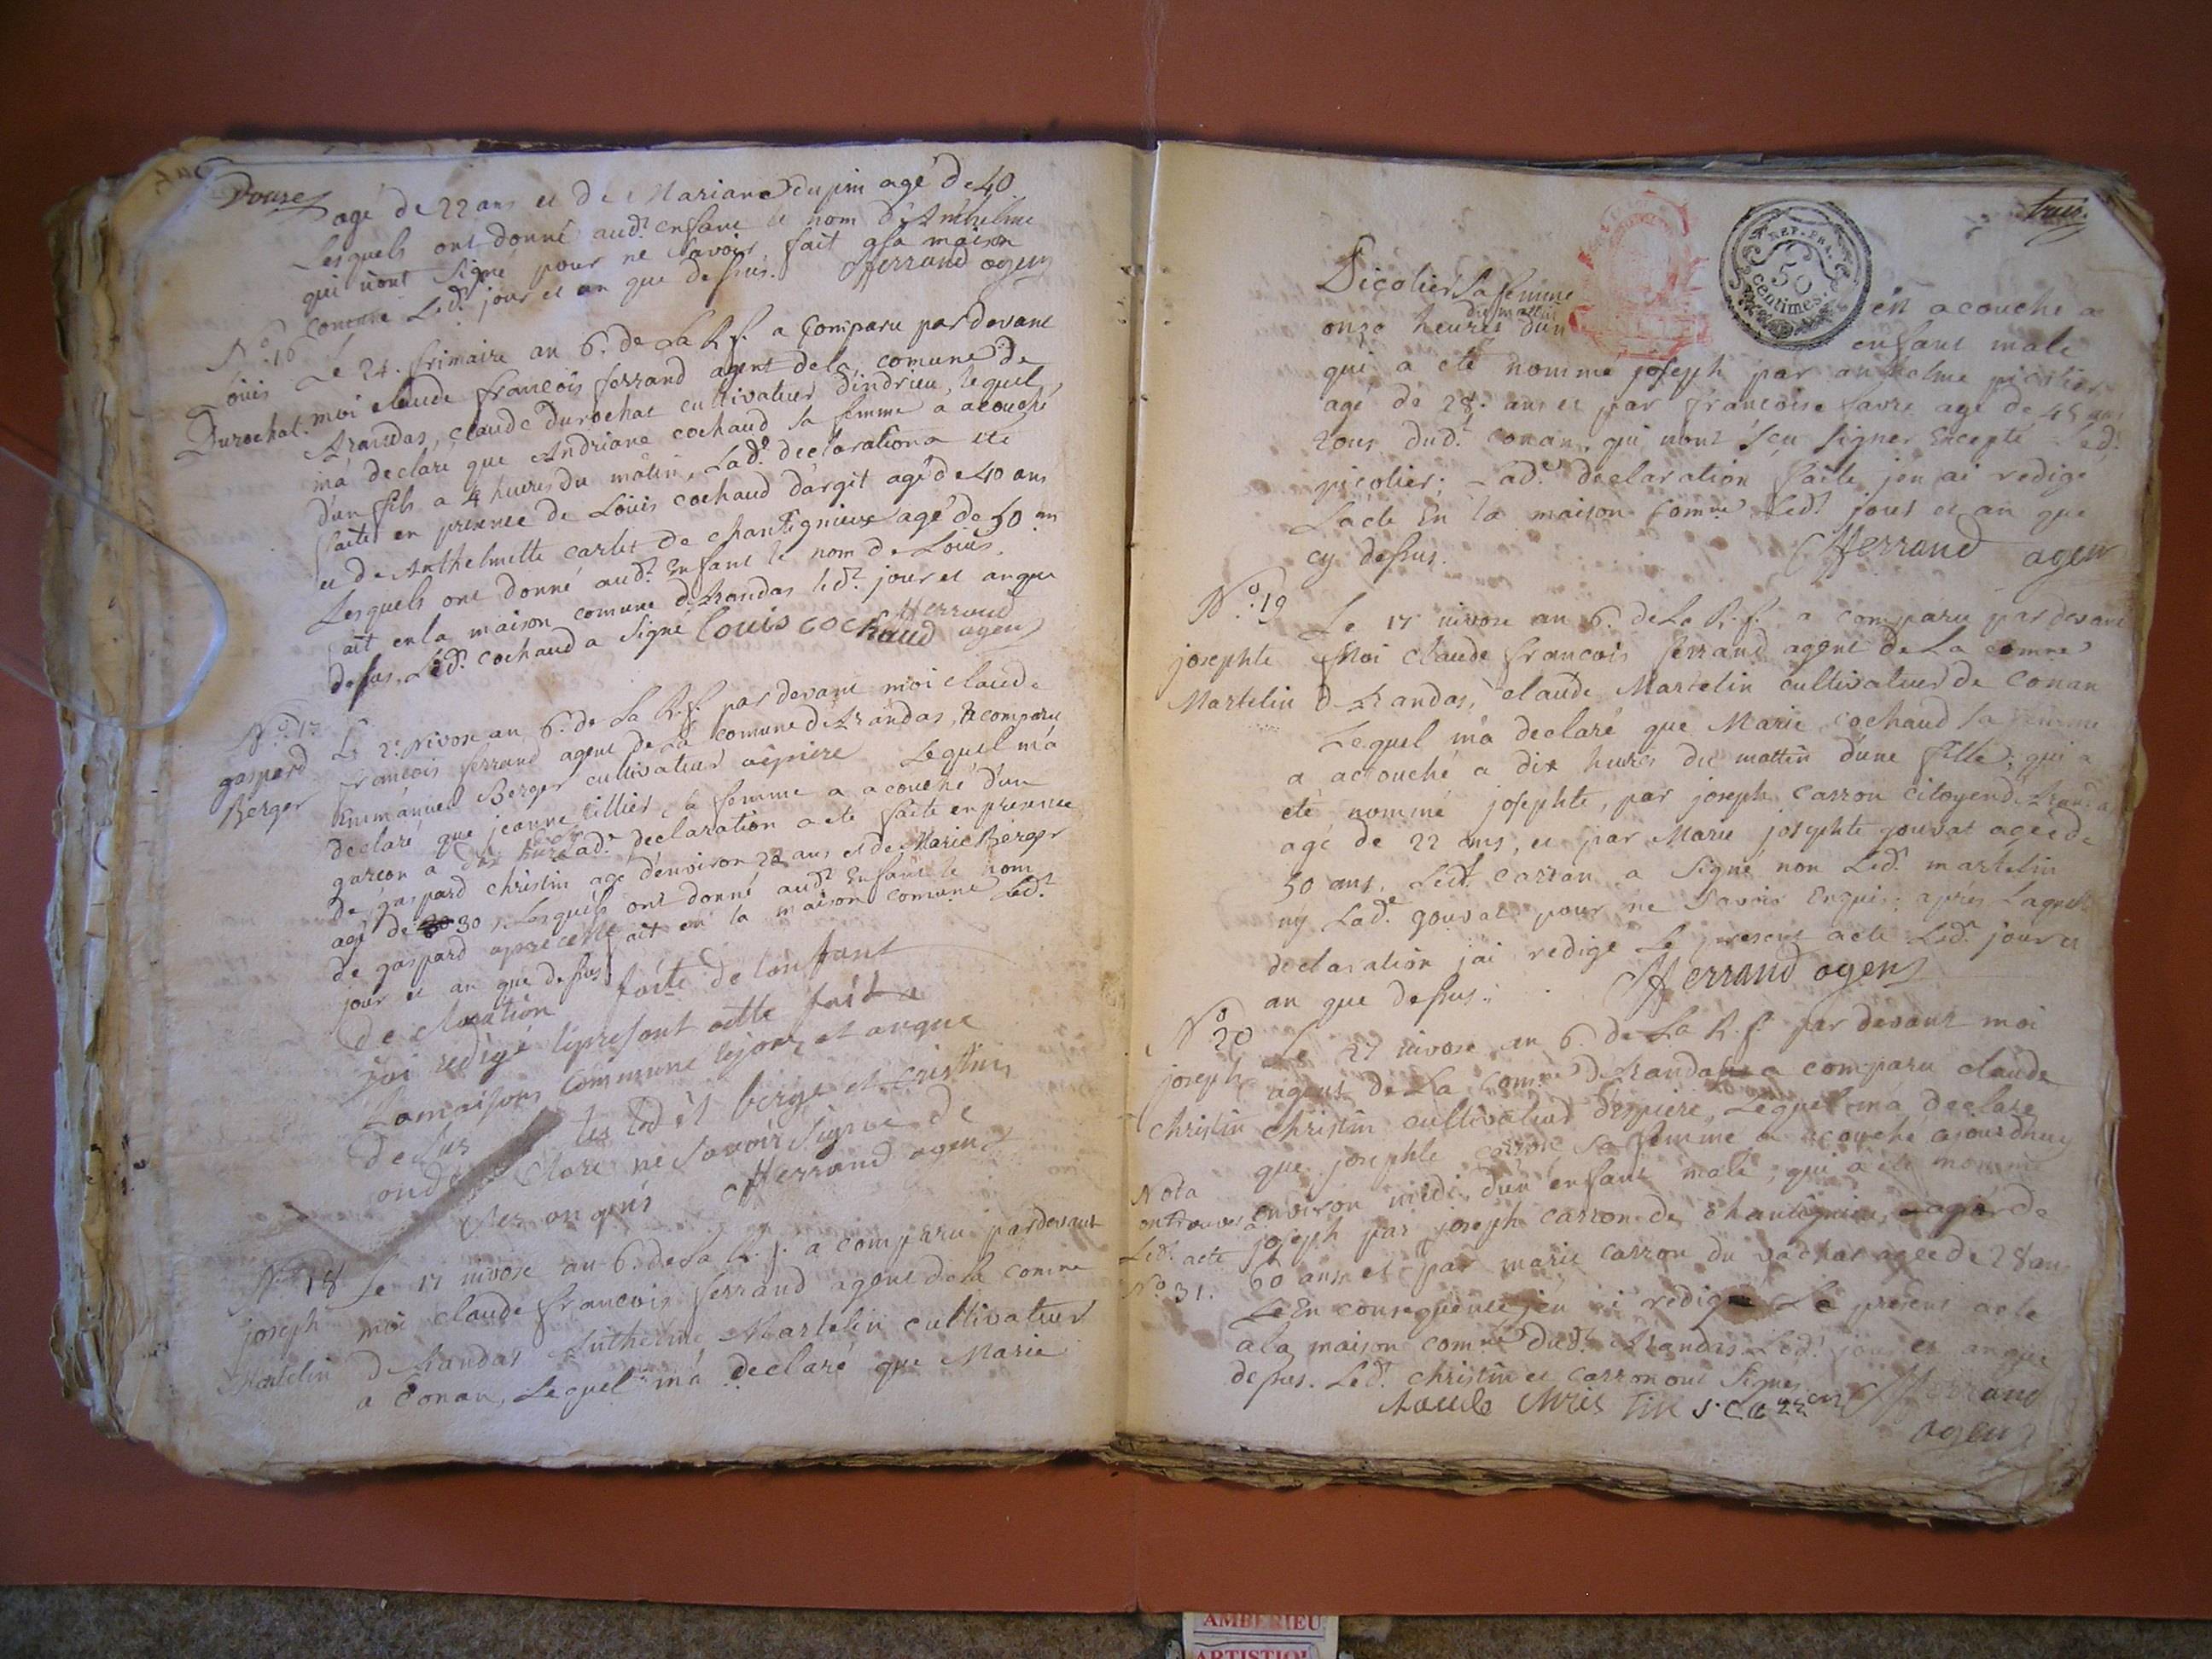 Douze
agé de 22 ans et de Mariane dupin agé de 40
Lesquels ont donné aud.t enfant le nom d'Anthelme
qui n'ont signé pour ne savoir fait a la maison
comune Led.t jour et an que dessus. CfFerrand agent
N.o 16
Louis
Durochat.
Le 24. frimaire an 6.e de La R. f. a Comparu par devant
moi claude françois ferrand agent de la comune de
Arandas, claude Durochat cultivateur d'indrieu, lequel
m'a declaré que Andriane cochaud sa femme a acouché
d'un fils a 4 heures du mâtin, Lad.e declaration a été
faite en presence de Loüis cochaud d'argit agé de 40 ans
et de Anthelmette carlet de chantignieux agé de 50 ans
Lesquels ont donné aud.t Enfant le nom de Louis.
fait en la maison comune d'Arandas led.t jour et an que
dessus, Led.t cochaud a signé louis cochaud CfFerrand agent
N.o 17
gaspard
Berger
Le 2.e Nivose an 6.e de La R. f. par devant moi claude
françois ferrand agent de La comune d'Arandas, a comparu
Emmanuel Berger cultivateur a épiere Lequel m'a
declaré que jeanne tillier sa femme a acouché d'un
garcon a dix heures Lad.e declaration a eté faite en presence
de gaspard christin agé d'environ 22 ans et de Marie Berger
agé de 30 30. Lesquels ont donné aud.t Enfant le nom
de gaspard apres cette fait en la maison comune Led.t
jour et an que dessus
de claration faite de lenffant
Jai redigé lepresent actte fait a
Lamaisons commune lejour et anque
desus les led it berge et cristin
ond de clare ne savoir signe de
ces anquis CfFerrand agent
N.o 18
joseph
Martelin
Le 17 nivose an 6. de la R. f. a comparu pardevant
moi claude francois ferrand agent de la comme
d'Arandas Anthelme Martelin cultivateur
a Conan, Lequel m'a declaré que Marie
treize
Picolier sa femme en acouché a
onze heures du mattin d'un enfant male
qui a eté nommé joseph par anthelme picolier
agé de 28. ans et par francoise favre agé de 45 ans
tous dud.t conan, qui n'ont sçu signer Excepté led.t
picolier; Lad.e declaration faite jen ai redigé
L'acte En la maison Comme Led.t jour et an que
cy dessus. CfFerrand agent
REP. FRA.
50
centimes.
N.o 19
josephte
Martelin
Le 17 nivose an 6. de La R. f. a comparu par devant
Moi claude francois ferrand agent de La comme
d'Arandas, claude Martelin cultivateur de Conan
Lequel m'a declaré que Marie cochaud sa femme
a acouché a dix heures du mattin d'une fille; qui a
eté nommé josephte, par joseph Carron citoyen d'Arandas
agé de 22 ans, et par Marie josephte gouvat ageé de
50 ans, Ledt. carron a signé non Led.t martelin
ny Lad.e gouvat pour ne savoir Enquis; aprés Laquelle
declaration j'ai redigé Le present acte Led.t jour et
an que dessus. CfFerrand agent
N.o 20
joseph
christin
Nota
on trouvera
Led.t acte
N.o 31.
Le 27 nivose an 6. de La R. f. par devant moi
agent de La Comme d'Arandas a comparu claude
christin cultivateur d'épiere, Lequel m'a declaré
que josephte carron sa femme a acouché ajourdhuy
environ midi, d'un enfant male, qui a eté nommé
joseph par joseph carron de chantignieu, agé de
60 ans et par marie carron du vachat agée de 28 ans
En consequence j'en ai redigé Le present acte
a la maison comme dud.t Arandas Led.t jour et an que
dessus. Led.t christin et carron ont signés
claude Chris tin J. Carron CfFerrand
agent
AMBERIEU
ARTISTIQUE